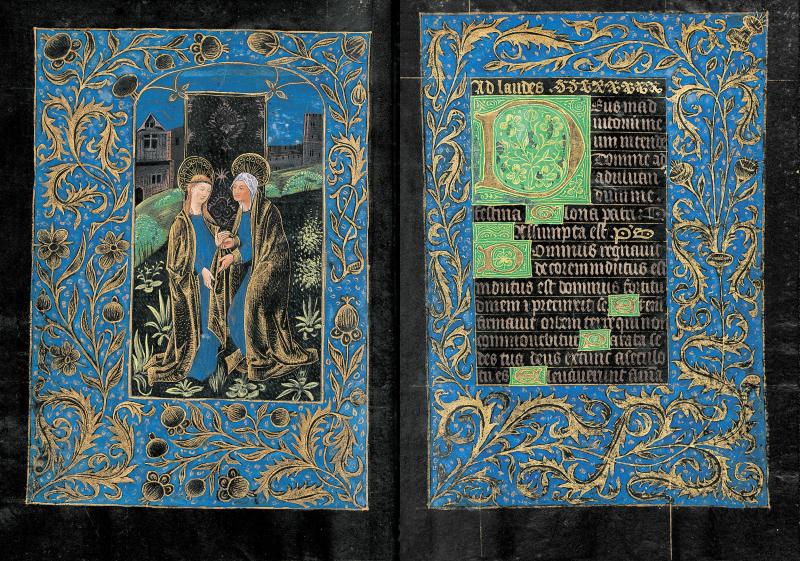 Ad laudes
Deus in ad
iutoriu me
um intende
Domine ad
adiuuan
dum me
festina Gloria patri
Assumpta est ps
Dominus regnauit
decorem indutus est
indutus est dominus fortitu
dinem et precinxit se Et eni
firmauit orbem terre qui non
commouebitur Parata se
des tua deus ex tunc a seculo
tu es Eleuauerunt flumi